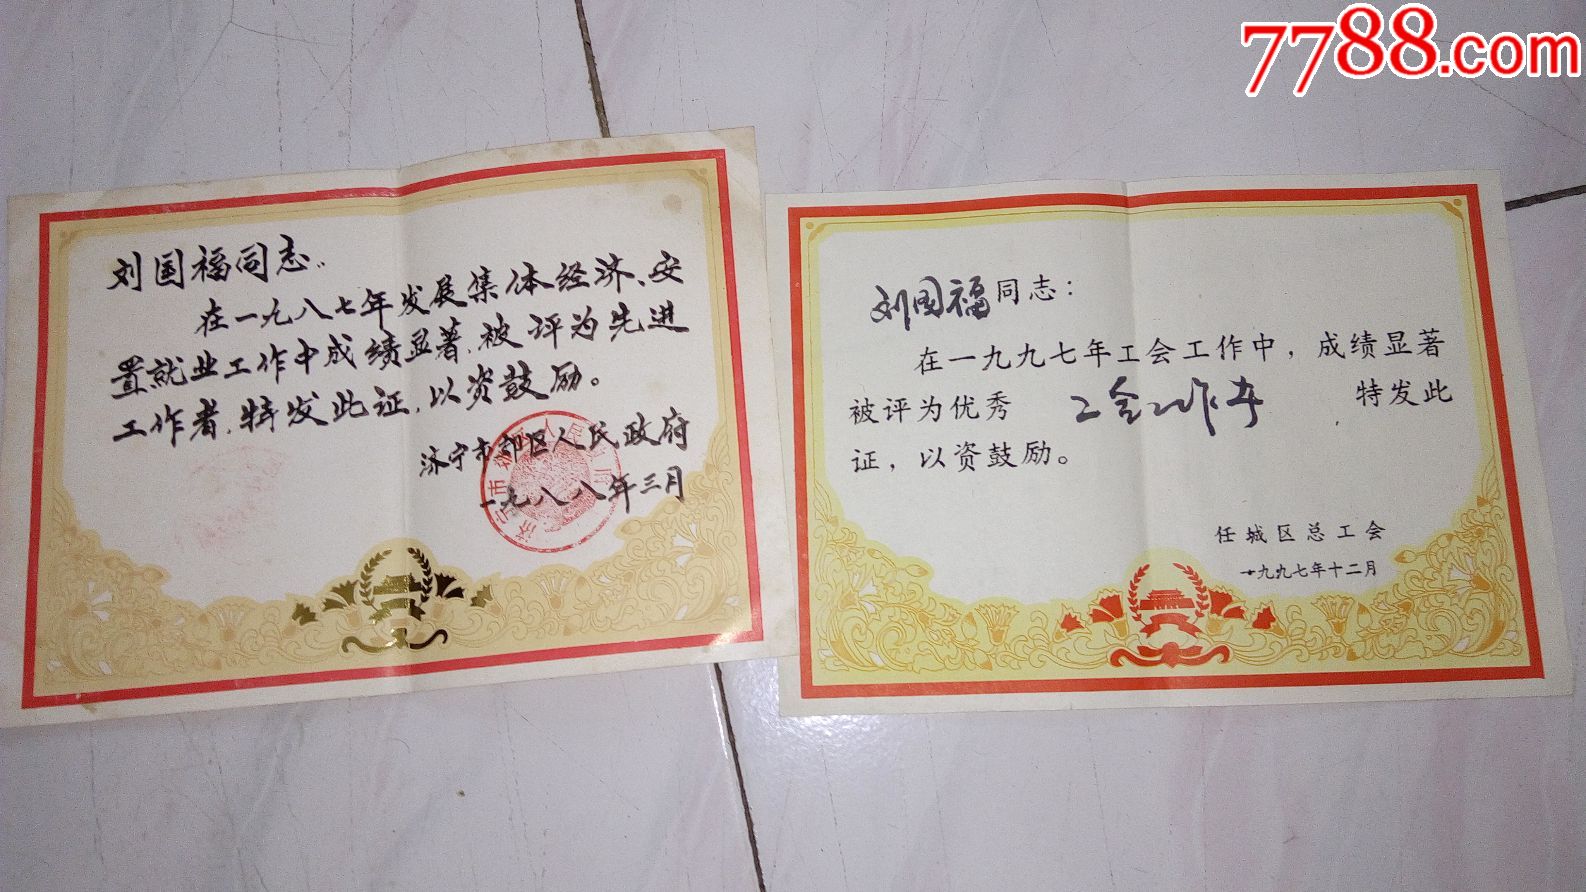 7788.com
刘国福同志:
在一九八七年发展集体经济、安
置就业工作中成绩显著,被评为先进
工作者,特发此证,以资鼓励。
济宁市郊区人民政府
一九八八年三月
刘国福同志:
在一九九七年工会工作中，成绩显著
被评为优秀 工会工作者 特发此
证，以资鼓励。
任城区总工会
一九九七年十二月